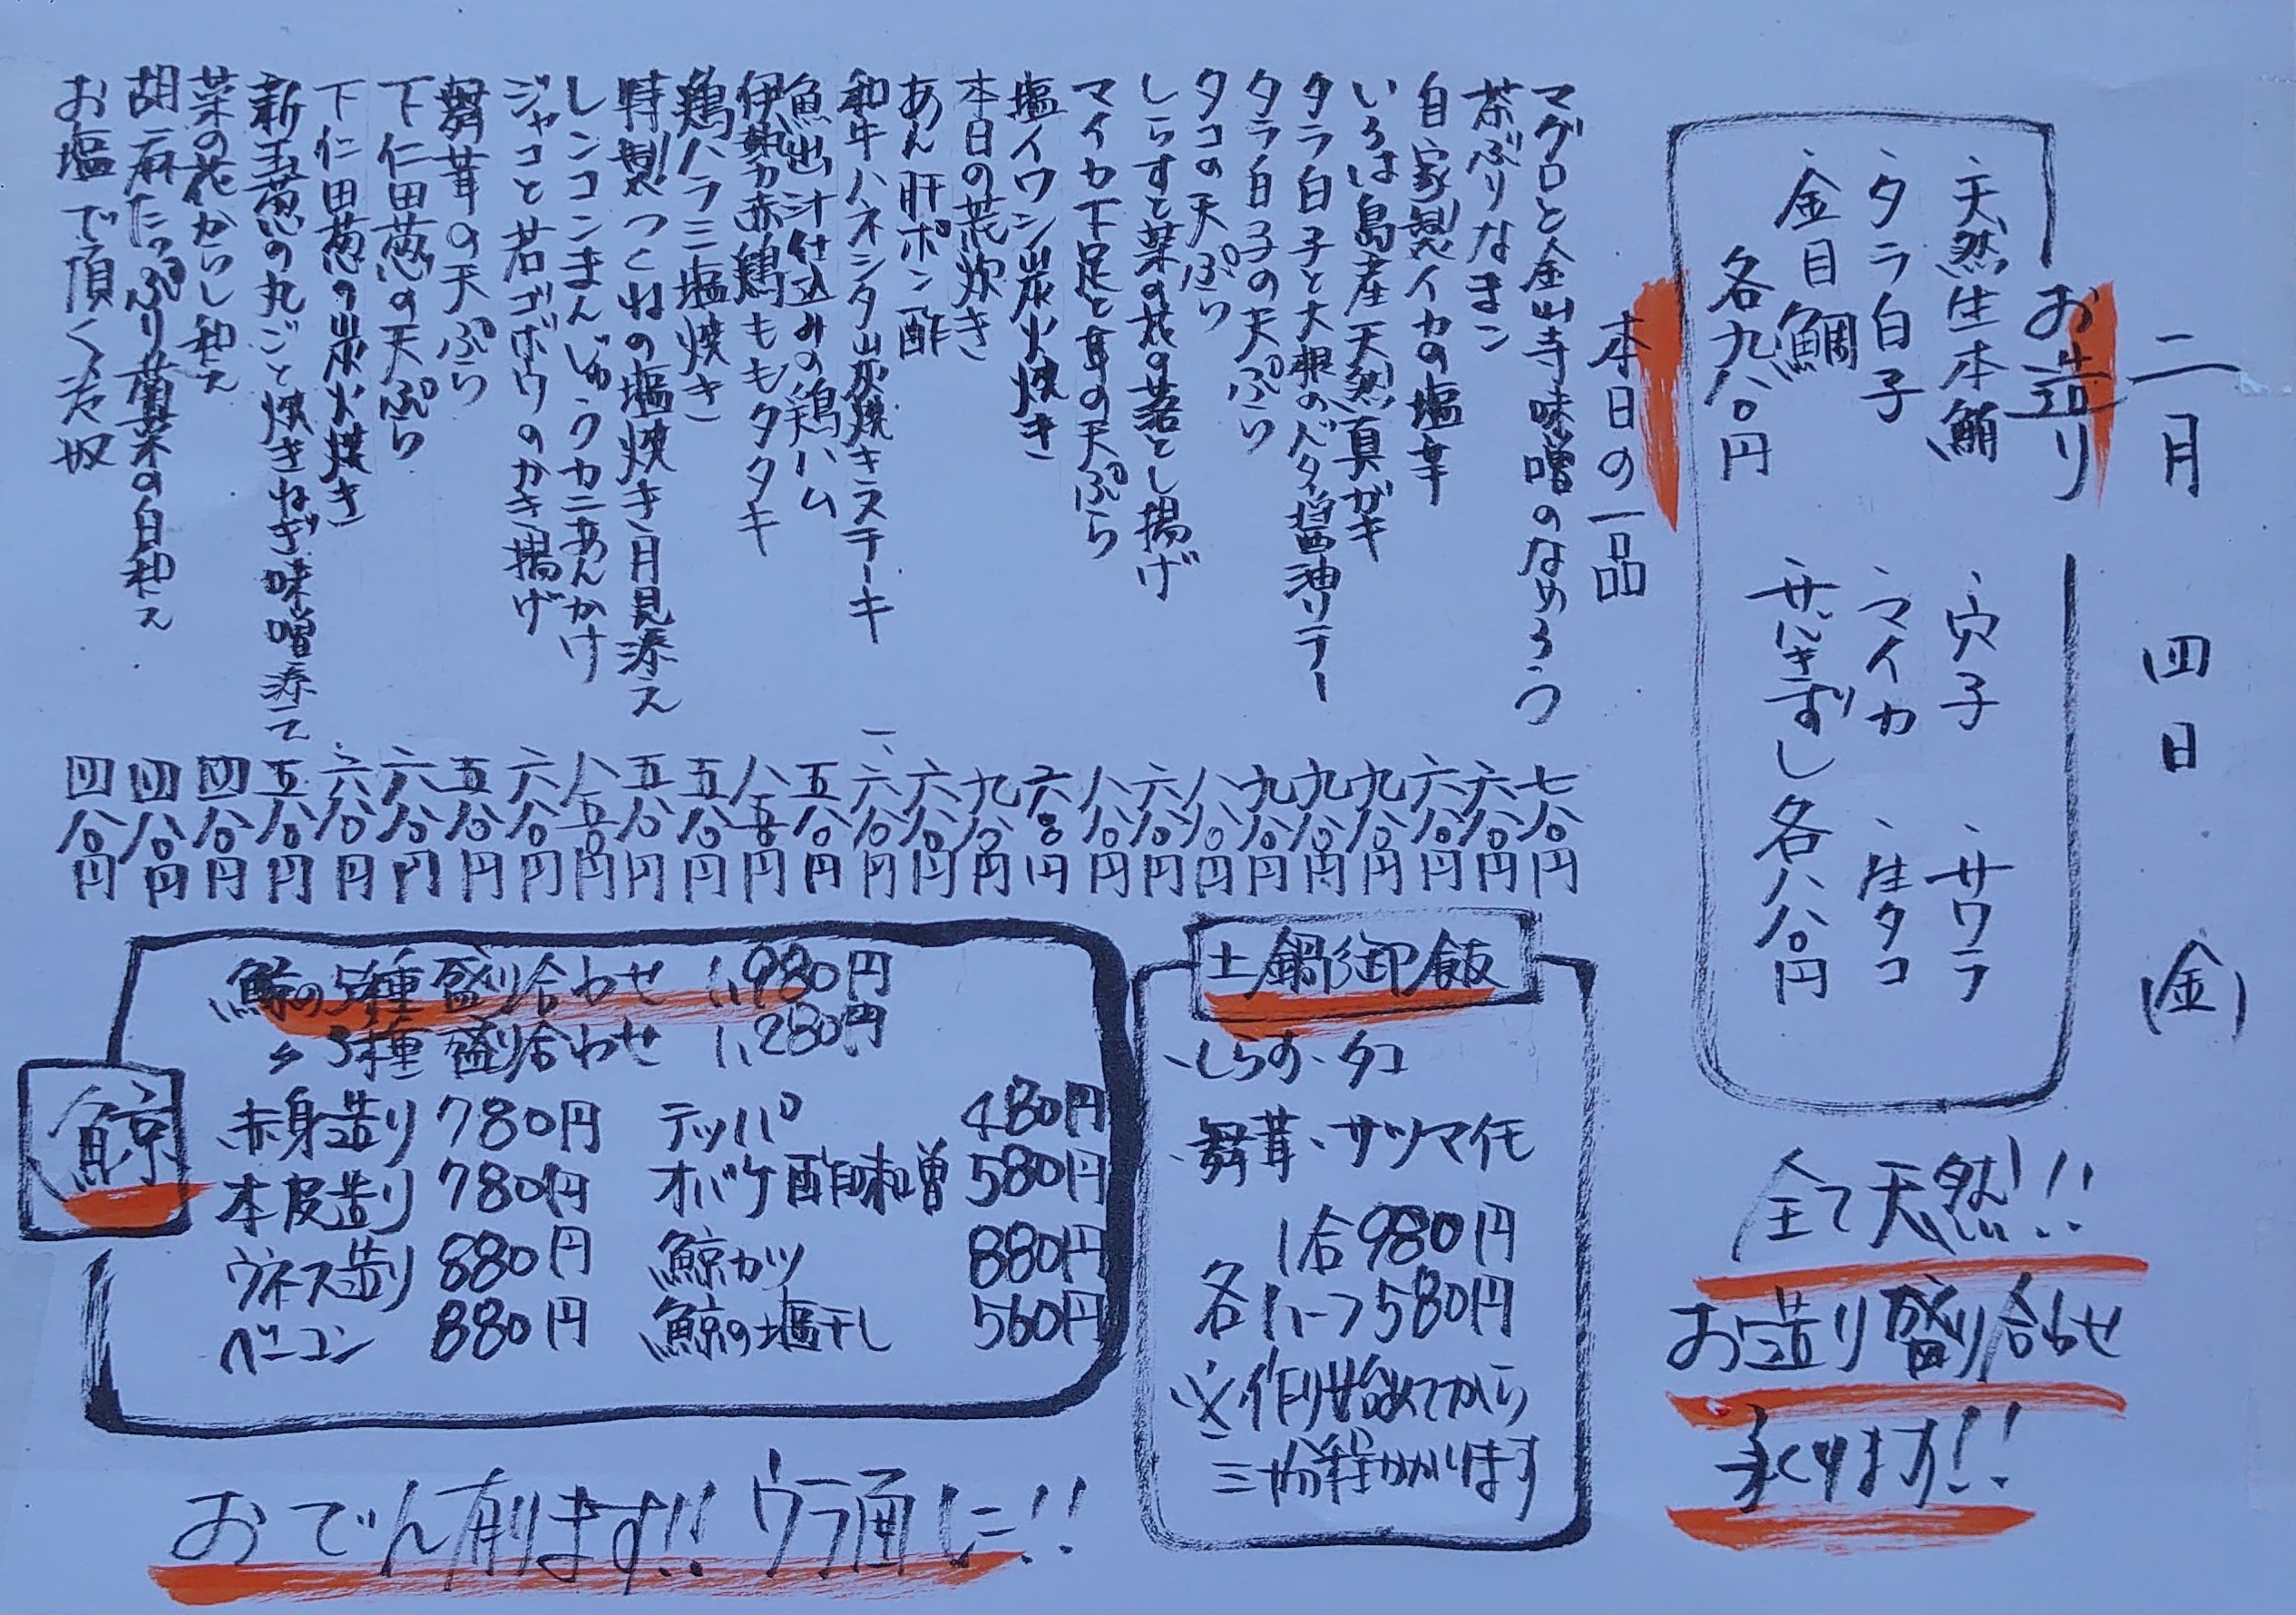 二月四日(金)
お造り
、天然生本鮪 、穴子 、サワラ
、タラ白子 、マイカ 、生タコ
、金目鯛 サバきずし 各八八〇円
各九八〇円
全て天然!!
お造り盛り合わせ
承ります!!
本日の一品
マグロと金山寺味噌のなめろう 七八〇円
茶ぶりなまこ 六八〇円
自家製イカの塩辛 六八〇円
いろは島産天然真ガキ 九八〇円
タラ白子と大根のバター醤油ソテー 九八〇円
タラ白子の天ぷら 九八〇円
タコの天ぷら 八八〇円
しらすと菜の花の落とし揚げ 六八〇円
マイカ下足と茸の天ぷら 八八〇円
塩イワシ炭火焼き 六八〇円
本日の荒炊き 九八〇円
あん肝ポン酢 六八〇円
和牛ハネシタ炭焼きステーキ 一、六八〇円
魚出汁仕込みの鶏ハム 五八〇円
伊勢赤鶏ももタタキ 八五〇円
鶏ハラミ塩焼き 五八〇円
特製つくねの塩焼き月見添え 五八〇円
レンコンまんじゅうカニあんかけ 八五〇円
ジャコと若ゴボウのかき揚げ 六八〇円
舞茸の天ぷら 五八〇円
下仁田葱の天ぷら 六八〇円
下仁田葱の炭火焼き 六八〇円
新玉葱の丸ごと焼きねぎ味噌添え 五八〇円
菜の花からし和え 四八〇円
胡麻たっぷり菊菜の白和え 四八〇円
お塩で頂く冷奴 四八〇円
土鍋御飯
、しらす、タコ
、舞茸、サツマイモ
1合980円
各ハーフ580円
※作り始めてから
三十分程かかります
鯨
鯨の5種盛り合わせ 1,980円
〃3種盛り合わせ 1,280円
赤身造り 780円 テッパ 480円
本皮造り 780円 オバケ酢味噌 580円
ウネス造り 880円 鯨カツ 880円
ベーコン 880円 鯨の塩干し 560円
おでん有ります!!ウラ面に!!